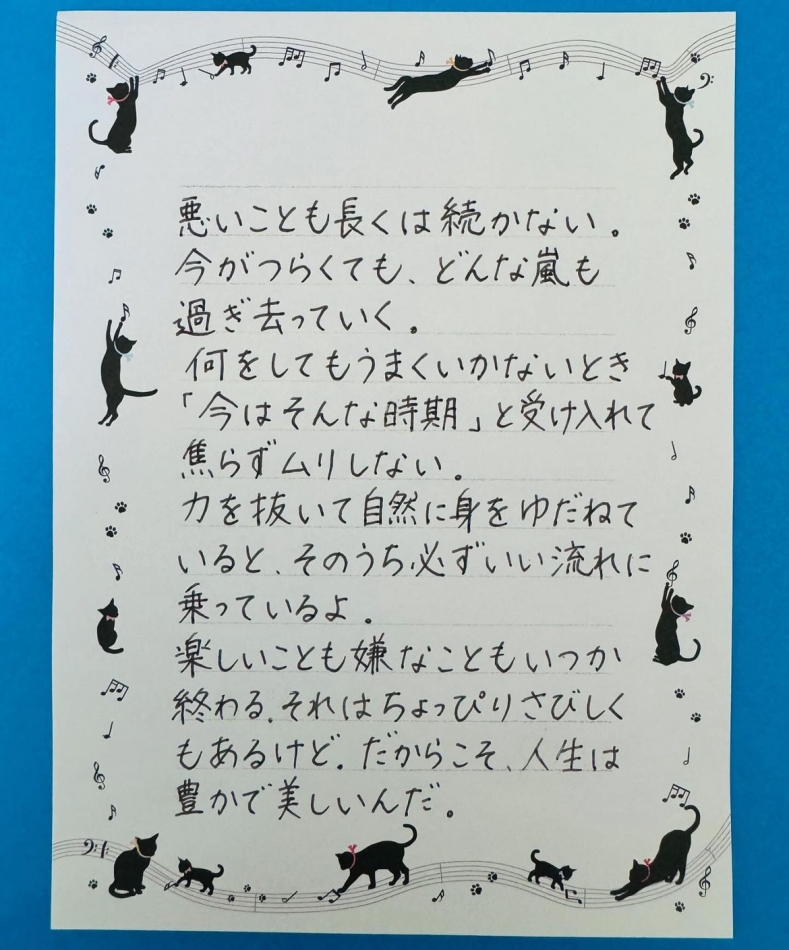 悪いことも長くは続かない。
今がつらくても、どんな嵐も
過ぎ去っていく。
何をしてもうまくいかないとき
「今はそんな時期」と受け入れて
焦らずムリしない。
力を抜いて自然に身をゆだねて
いると、そのうち必ずいい流れに
乗っているよ。
楽しいことも嫌なこともいつか
終わる。それはちょっぴりさびしく
もあるけど。だからこそ、人生は
豊かで美しいんだ。